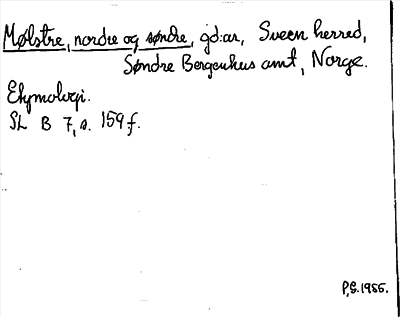 Mølstre, nordre og søndre, gd:ar, Sveen herred,
Søndre Bergenhus amt, Norge.
Etymologi.
SL B 7, s. 159 f.
P.S. 1955.